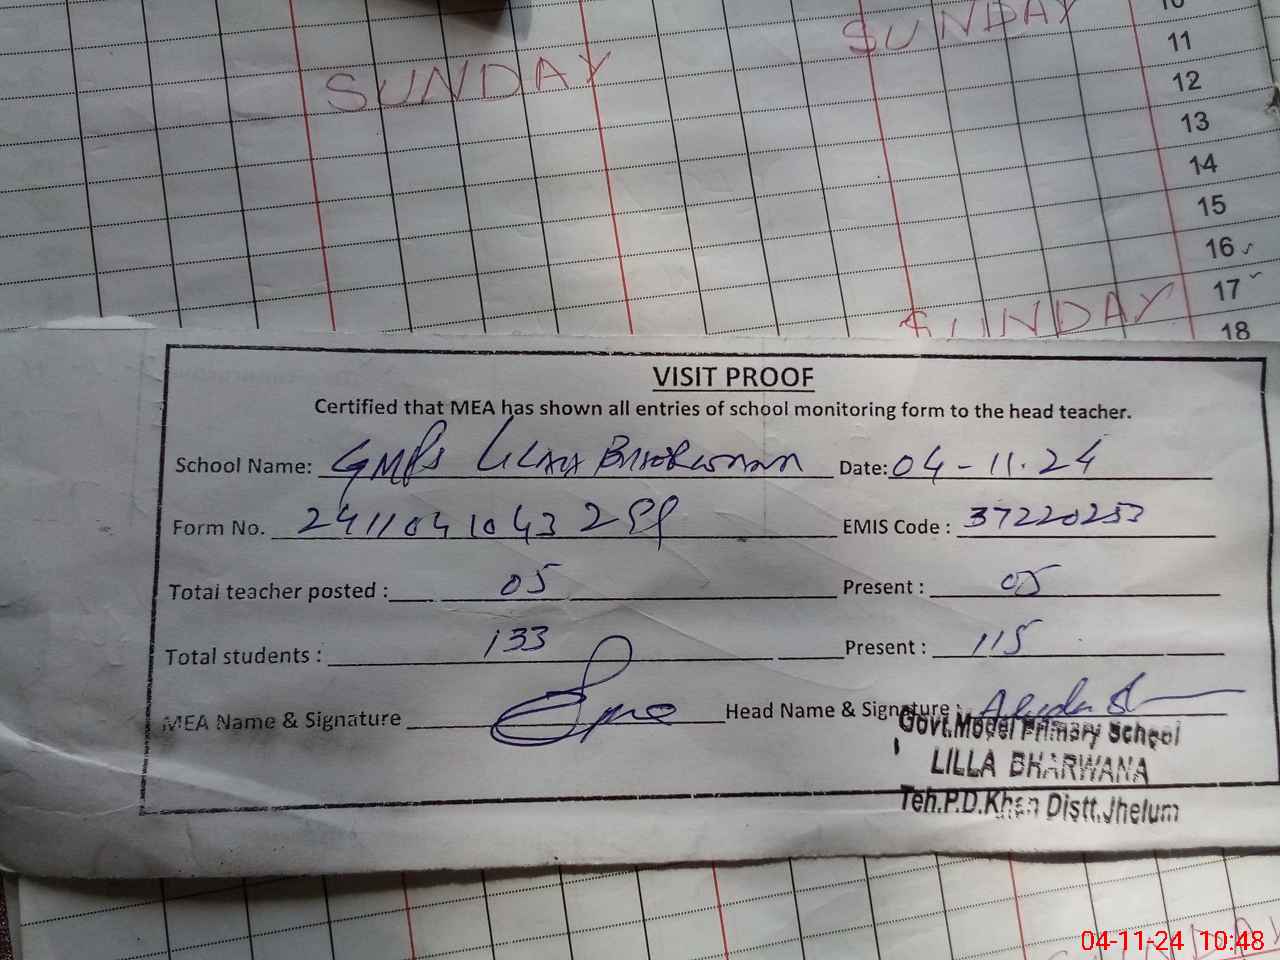 SUNDAY
SUNDAY
10
11
12
13
14
15
16
17
SUNDAY
18
VISIT PROOF
Certified that MEA has shown all entries of school monitoring form to the head teacher.
School Name: GMPS Lilla Bharwana Date: 04-11.24
Form No. 241104104329 EMIS Code : 37220253
Total teacher posted : 05 Present : 05
Total students : 133 Present : 115
MEA Name & Signature Head Name & Signature :
Govt.Model Primary School
LILLA BHARWANA
Teh.P.D.Khan Distt.Jhelum
04-11-24 10:48